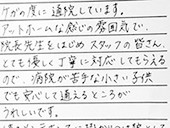 ケガの度に通院しています。
アットホームな感じの雰囲気で、
院長先生をはじめスタッフの皆さん、
とても優しく丁寧に対応してもらえる
ので、病院が苦手な小さい子供
でも安心して通えるところが
うれしいです。